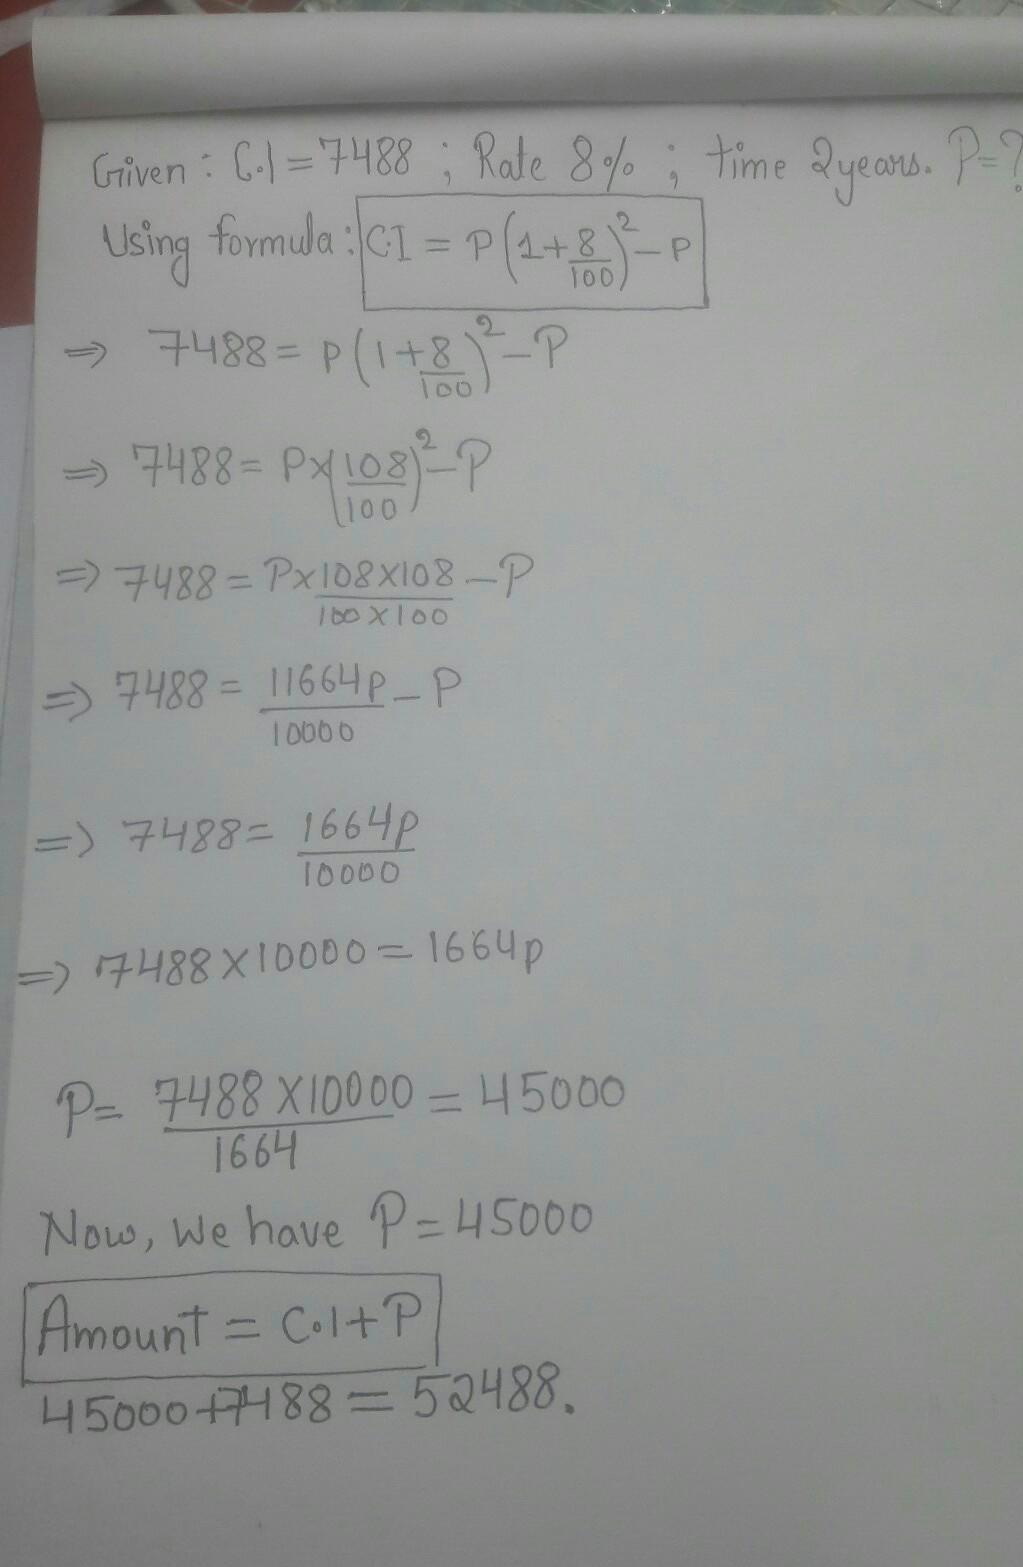 Given : C.I = 7488 ; Rate 8% ; time 2years. P=?
Using formula : CI = P(1+8/100)²-P
⇒ 7488 = P(1+8/100)²-P
⇒ 7488 = P×(108/100)²-P
⇒ 7488 = P×108×108/100×100 -P
⇒ 7488 = 11664P/10000 - P
⇒ 7488 = 1664P/10000
⇒ 7488×10000 = 1664P
P= 7488×10000/1664 = 45000
Now, We have P = 45000
Amount = C.I+P
45000+7488 = 52488.